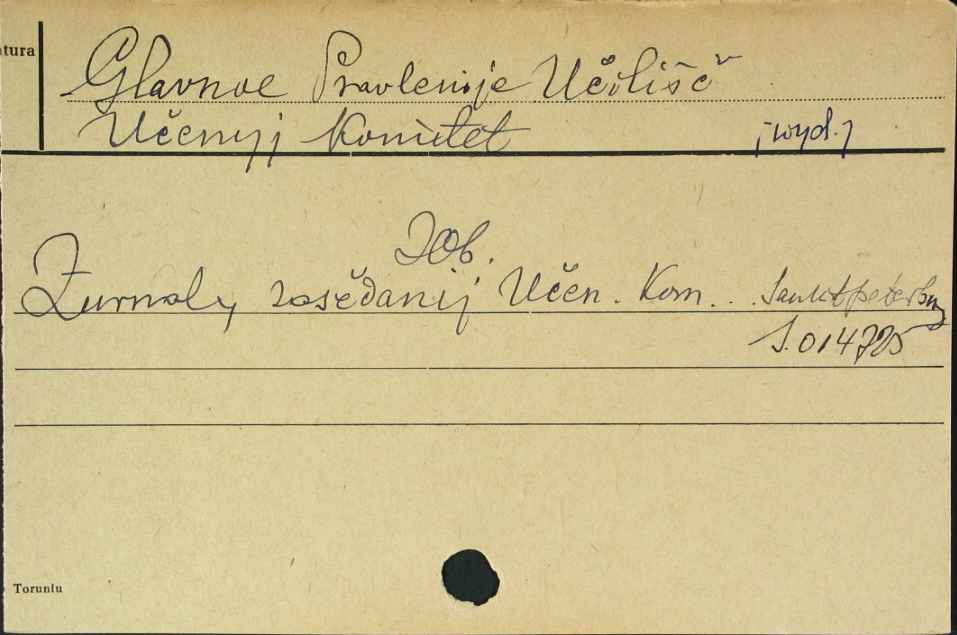 tura
Glavnoe Pravlenije Učilišč
Učenyj Komitet [wyd.]
Zob.
Žurnaly zasědanij Učen. Kom. .. Sanktpeterburg
S.014725
Toruniu